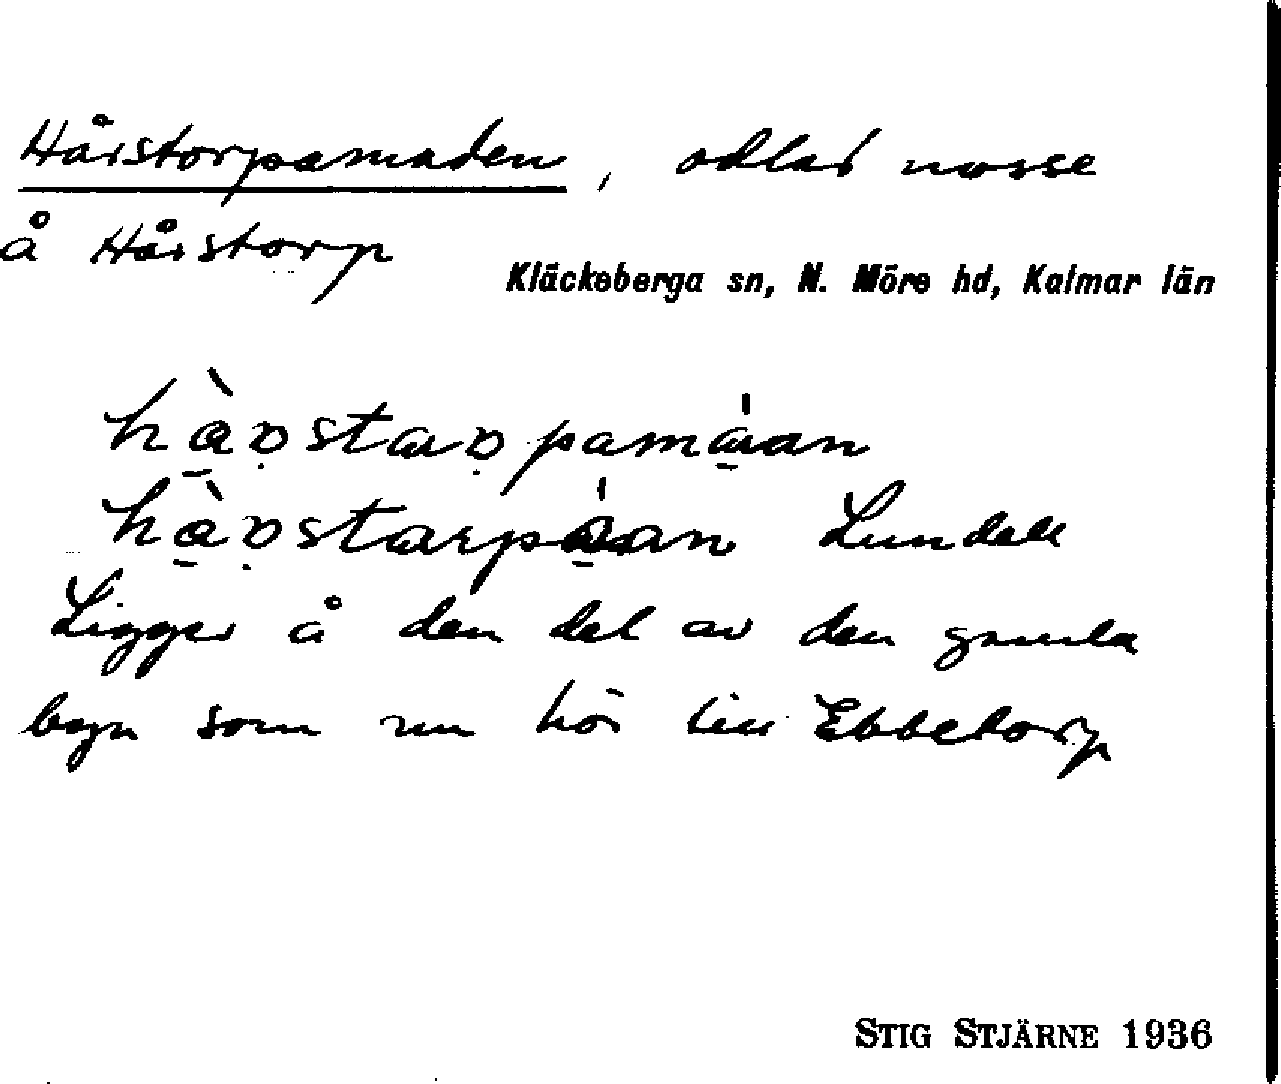 Hårstorpamaden, odlad mosse
å Hårstorp
Kläckeberga sn, N. Möre hd, Kalmar län
Lundell
Ligger å den del av den gamla
byn som nu hör till Ebbetorp
STIG STJÄRNE 1936